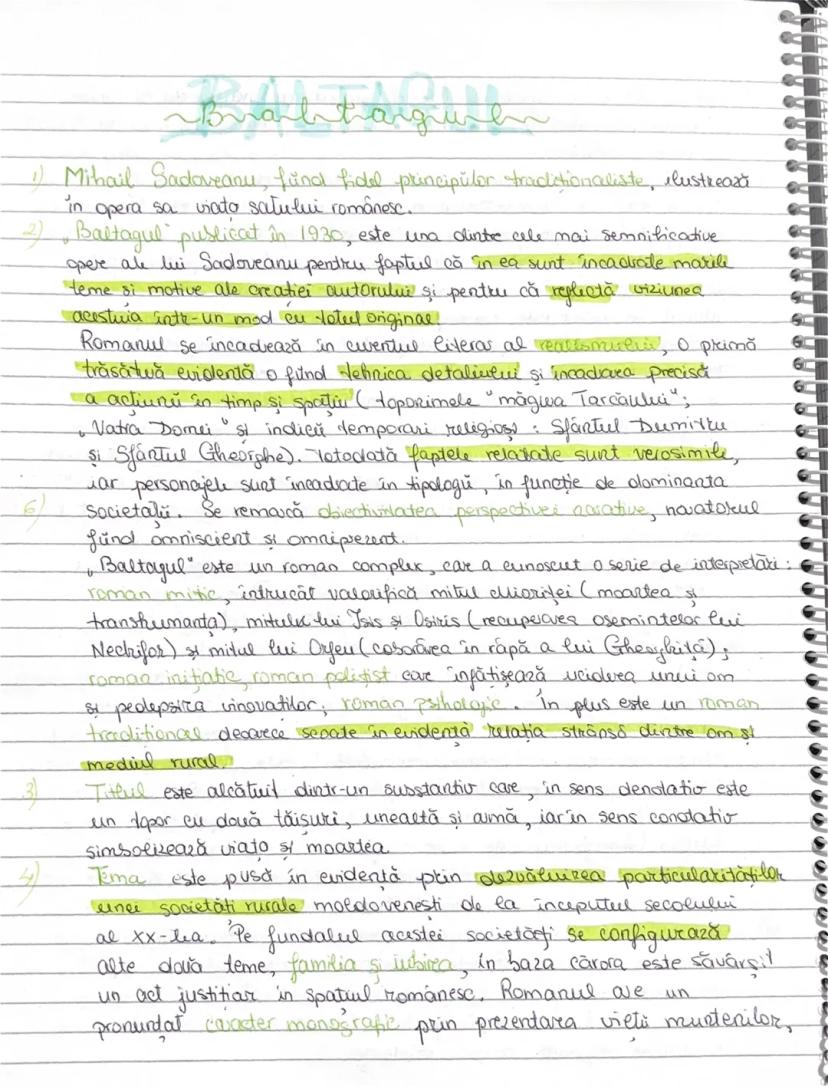 BALTAGUL
Baltagul
1) Mihail Sadoveanu, fiind fidel principiilor tradiționaliste, ilustrează
în opera sa viața satului românesc.
2) „Baltagul" publicat în 1930, este una dintre cele mai semnificative
opere ale lui Sadoveanu pentru faptul că în ea sunt încadrate marile
teme și motive ale creației autorului și pentru că reflectă viziunea
acestuia într-un mod cu totul original.
Romanul se încadrează în curentul literar al realismului, o primă
trăsătură evidentă o fiind tehnica detaliului și încadrarea precisă
a acțiunii în timp și spațiu (toponimele "măgura Tarcăului";
„Vatra Dornei" și indicii temporari religioși: Sfântul Dumitru
și Sfântul Gheorghe). Totodată faptele relatate sunt verosimile,
iar personajele sunt încadrate în tipologii, în funcție de dominanta
6) societății. Se remarcă obiectivitatea perspectivei narative, naratorul
fiind omniscient și omniprezent.
„Baltagul" este un roman complex, care a cunoscut o serie de interpretări:
roman mitic, întrucât valorifică mitul Mioriței (moartea și
transhumanța), mitul lui Isis și Osiris (recuperarea osemintelor lui
Nechifor) și mitul lui Orfeu (coborârea în râpă a lui Gheorghiță);
roman inițiatic, roman polițist care înfățișează uciderea unui om
și pedepsirea vinovaților; roman psihologic. În plus este un roman
tradițional deoarece scoate în evidență relația strânsă dintre om și
mediul rural.
3) Titlul este alcătuit dintr-un substantiv care, în sens denotativ este
un topor cu două tăișuri, unealtă și armă, iar în sens conotativ
simbolizează viața și moartea
4) Tema este pusă în evidență prin dezvăluirea particularităților
unei societăți rurale moldovenești de la începutul secolului
al XX-lea. Pe fundalul acestei societăți se configurază
alte două teme, familia și iubirea, în baza cărora este săvârșit
un act justițiar în spațiul românesc. Romanul are un
pronunțat caracter monografic prin prezentarea vieții muntenilor,